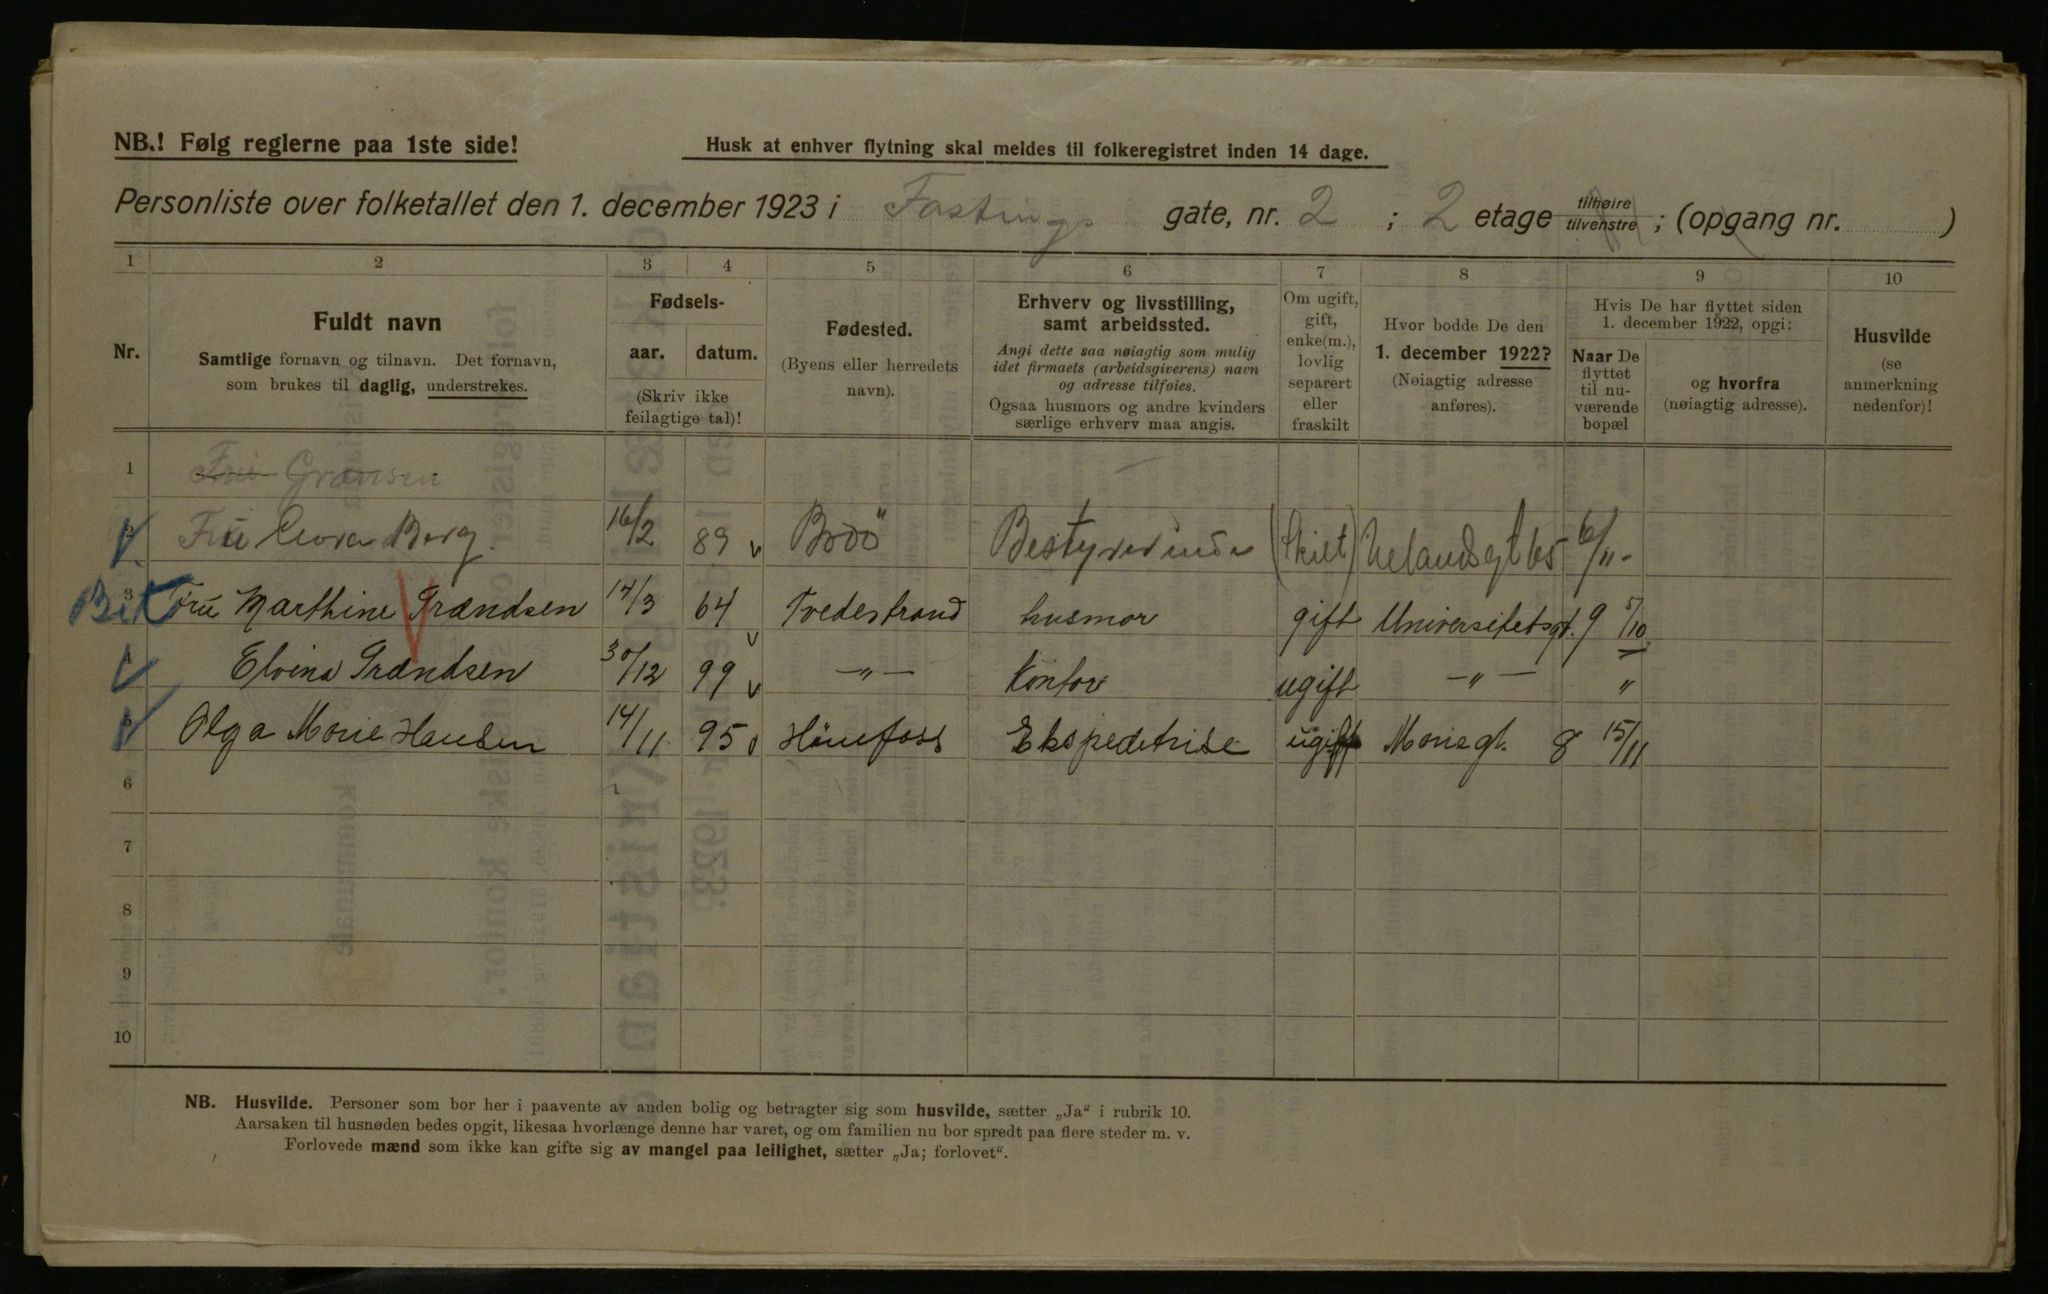 NB.! Følg reglerne paa 1ste side!
Husk at enhver flytning skal meldes til folkeregistret inden 14 dage.
Personliste over folketallet den 1. december 1923 i Fastings gate, nr. 2 ; 2 etage tilhøire tilvenstre ; (opgang nr. )
1 2 3 4 5 6 7 8 9 10
Nr.
Fuldt navn
Samtlige fornavn og tilnavn. Det fornavn,
som brukes til daglig, understrekes.
Fødsels-
aar. datum.
(Skriv ikke
feilagtige tal)!
Fødested.
(Byens eller herredets
navn).
Erhverv og livsstilling,
samt arbeidssted.
Angi dette saa nøiagtig som mulig
idet firmaets (arbeidsgiverens) navn
og adresse tilføies.
Ogsaa husmors og andre kvinders
særlige erhverv maa angis.
Om ugift,
gift,
enke(m.),
lovlig
separert
eller
fraskilt
Hvor bodde De den
1. december 1922?
(Nøiagtig adresse
anføres).
Hvis De har flyttet siden
1. december 1922, opgi:
Naar De
flyttet
til nu-
værende
bopæl
og hvorfra
(nøiagtig adresse).
Husvilde
(se
anmerkning
nedenfor)!
1 Grænsen
2 Fru Berg. 16/2 89 Bodö Bestyrerinde (skilt) Uelandsgt 65 6/11-
3 Fru Marthine Frændsen 14/3 64 Tvedestrand husmor gift Universitetsgt. 9 5/10
4 Elvina Frændsen 30/12 99 -„- Kontor ugift -„- „
5 Olga Marie Hansen 14/11 95 Hönefoss Ekspeditrise ugift Mariegt. 8 15/11
6
7
8
9
10
NB. Husvilde. Personer som bor her i paavente av anden bolig og betragter sig som husvilde, sætter „Ja“ i rubrik 10.
Aarsaken til husnøden bedes opgit, likesaa hvorlænge denne har varet, og om familien nu bor spredt paa flere steder m. v.
Forlovede mænd som ikke kan gifte sig av mangel paa leilighet, sætter „Ja; forlovet“.